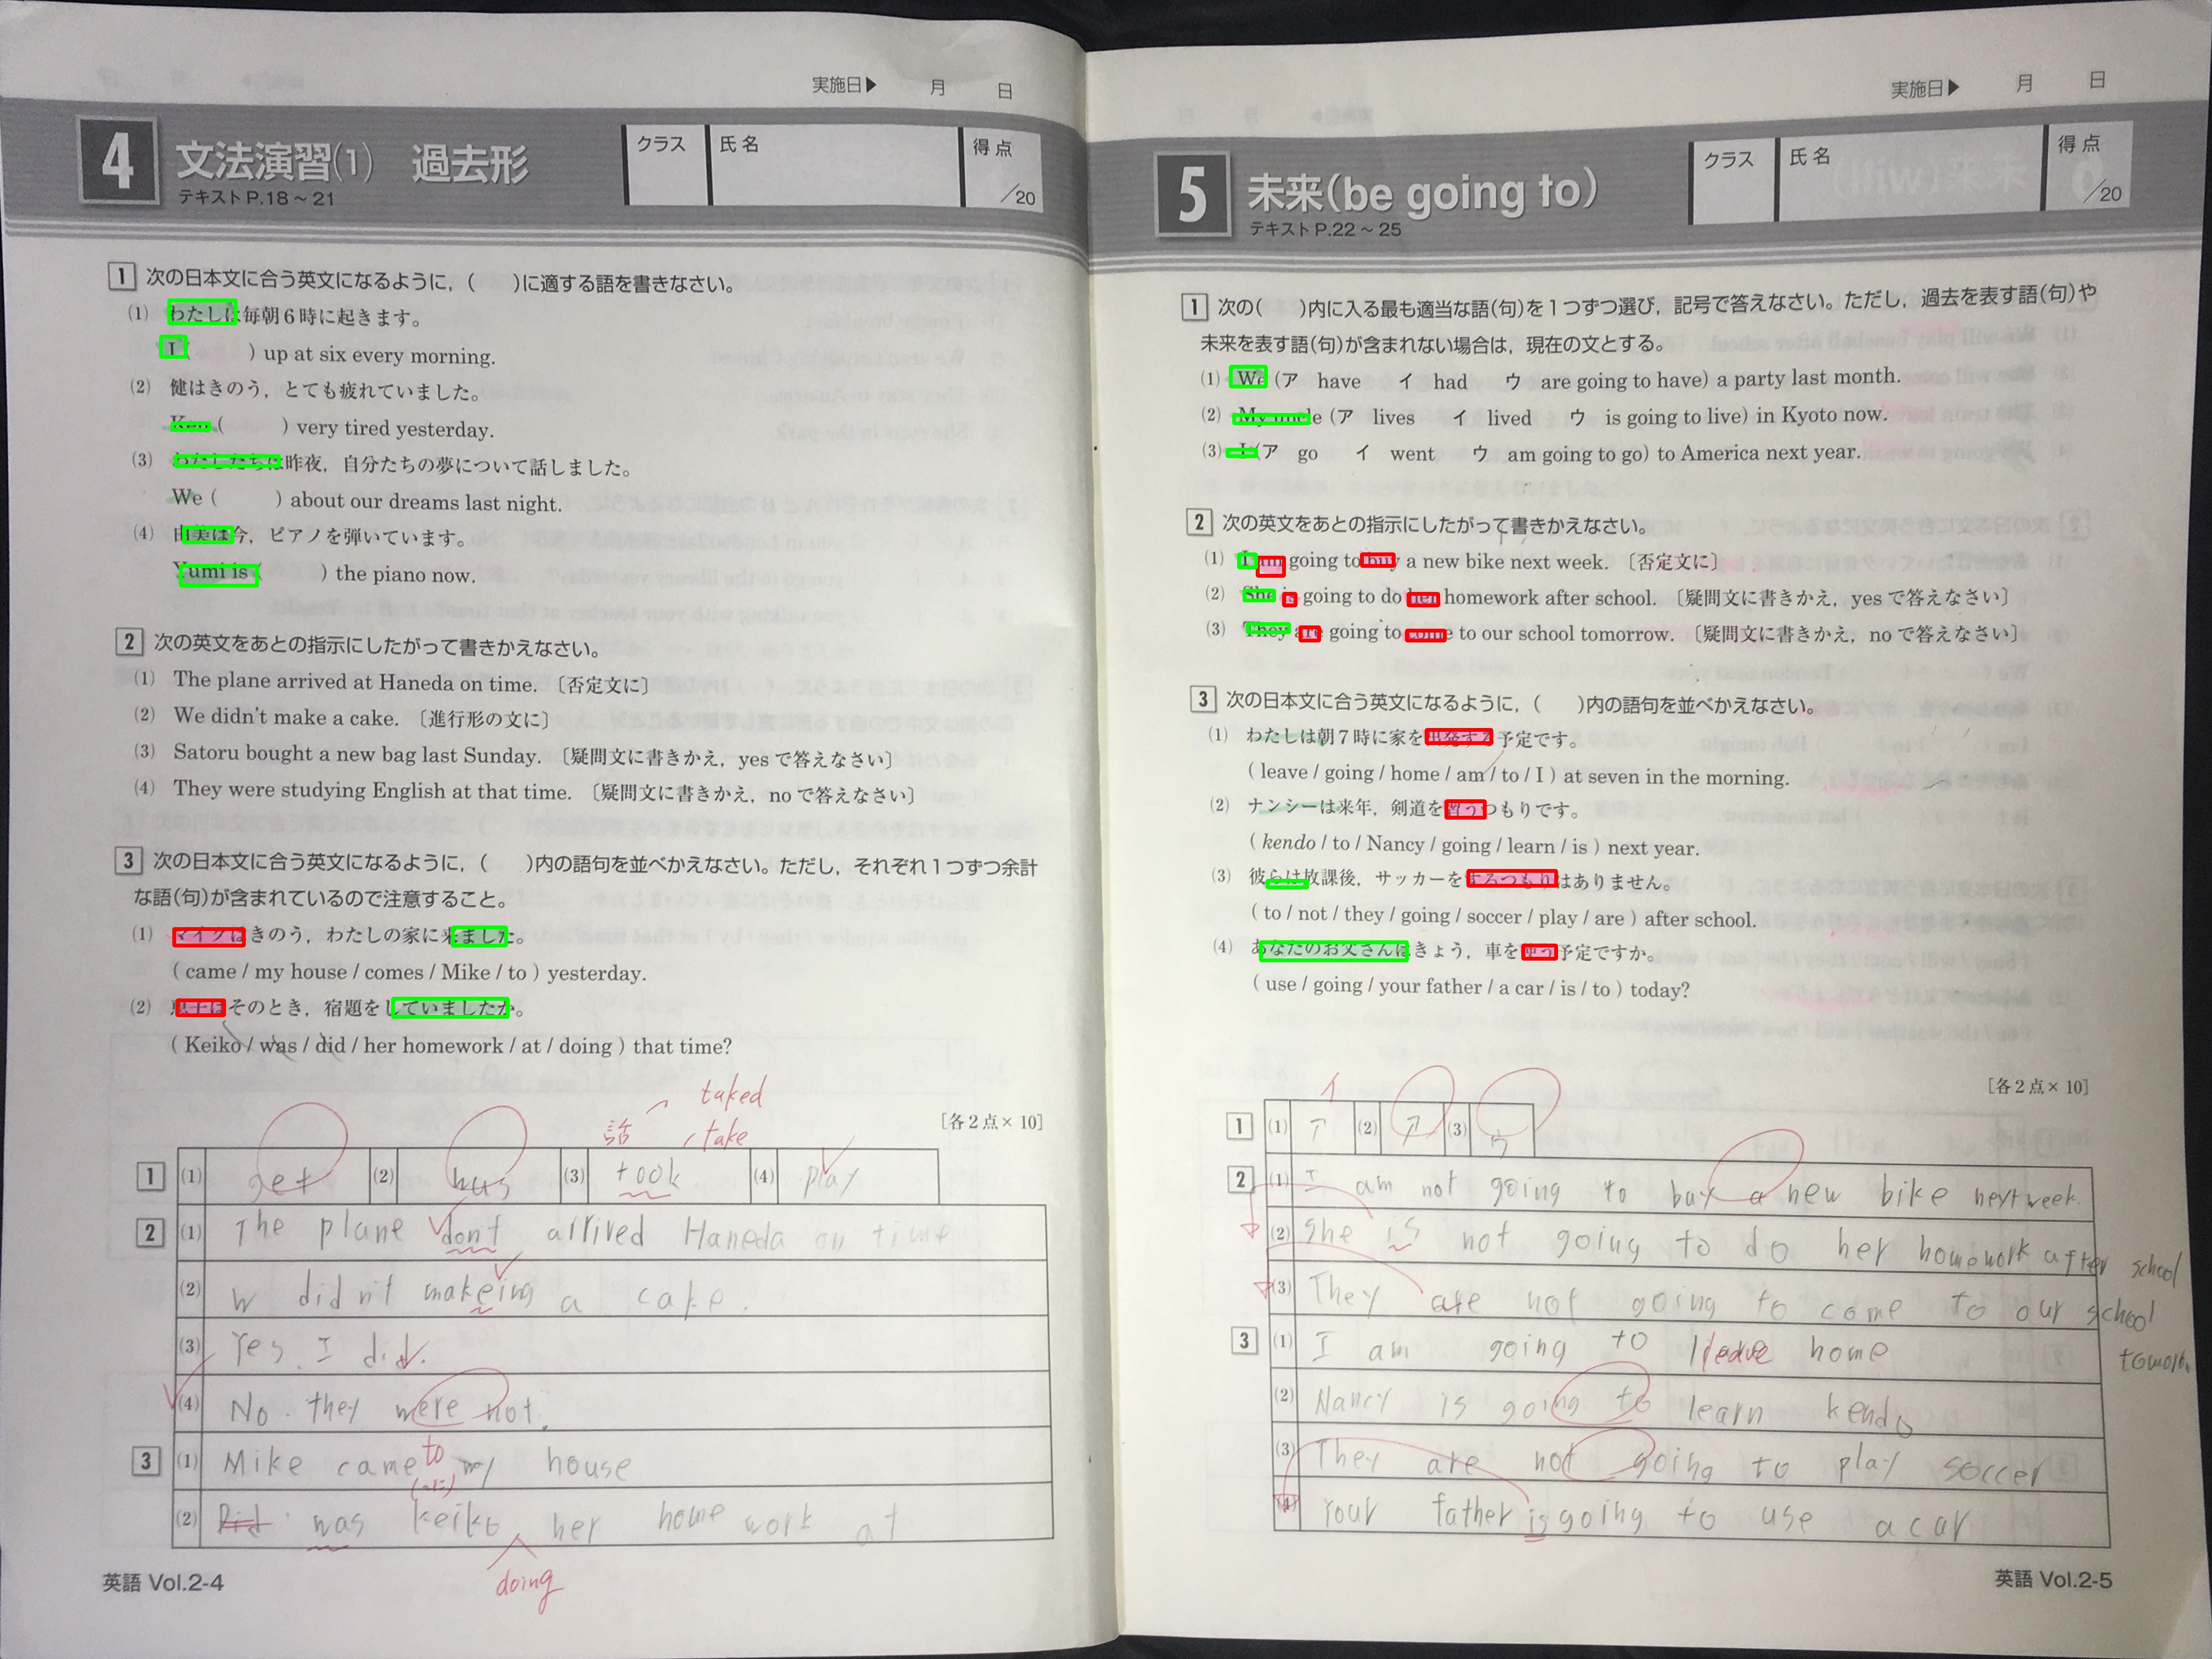 実施日▶ 月 日
4 文法演習(1) 過去形
テキストP.18～21
クラス 氏名 得点 /20
1 次の日本文に合う英文になるように，( )に適する語を書きなさい。
(1) わたしは毎朝6時に起きます。
I ( ) up at six every morning.
(2) 健はきのう，とても疲れていました。
Ken ( ) very tired yesterday.
(3) わたしたちは昨夜，自分たちの夢について話しました。
We ( ) about our dreams last night.
(4) 由美は今，ピアノを弾いています。
Yumi is ( ) the piano now.
2 次の英文をあとの指示にしたがって書きかえなさい。
(1) The plane arrived at Haneda on time. 〔否定文に〕
(2) We didn't make a cake. 〔進行形の文に〕
(3) Satoru bought a new bag last Sunday. 〔疑問文に書きかえ，yesで答えなさい〕
(4) They were studying English at that time. 〔疑問文に書きかえ，noで答えなさい〕
3 次の日本文に合う英文になるように，( )内の語句を並べかえなさい。ただし，それぞれ1つずつ余計
な語(句)が含まれているので注意すること。
(1) マイクはきのう，わたしの家に来ました。
( came / my house / comes / Mike / to ) yesterday.
(2) 恵子はそのとき，宿題をしていましたか。
( Keiko / was / did / her homework / at / doing ) that time?
taked
話 take
[各2点×10]
1 (1) get (2) was (3) took (4) play
2 (1) The plane dont arrived Haneda on time
(2) W didn't makeing a cake.
(3) Yes, I did.
(4) No. they were not.
3 (1) Mike came to my house
(2) Did was keiko her home work at
doing
英語 Vol.2-4
実施日▶ 月 日
5 未来(be going to)
テキストP.22～25
クラス 氏名 得点 /20
1 次の( )内に入る最も適当な語(句)を1つずつ選び，記号で答えなさい。ただし，過去を表す語(句)や
未来を表す語(句)が含まれない場合は，現在の文とする。
(1) We (ア have イ had ウ are going to have) a party last month.
(2) My uncle (ア lives イ lived ウ is going to live) in Kyoto now.
(3) I (ア go イ went ウ am going to go) to America next year.
2 次の英文をあとの指示にしたがって書きかえなさい。
(1) I am going to buy a new bike next week. 〔否定文に〕
(2) She is going to do her homework after school. 〔疑問文に書きかえ，yesで答えなさい〕
(3) They are going to come to our school tomorrow. 〔疑問文に書きかえ，noで答えなさい〕
3 次の日本文に合う英文になるように，( )内の語句を並べかえなさい。
(1) わたしは朝7時に家を出発する予定です。
( leave / going / home / am / to / I ) at seven in the morning.
(2) ナンシーは来年，剣道を習うつもりです。
( kendo / to / Nancy / going / learn / is ) next year.
(3) 彼らは放課後，サッカーをするつもりはありません。
( to / not / they / going / soccer / play / are ) after school.
(4) あなたのお父さんはきょう，車を使う予定ですか。
( use / going / your father / a car / is / to ) today?
[各2点×10]
イ
1 (1) ア (2) ア (3) ウ
2 (1) I am not going to buy a new bike next week.
(2) She is not going to do her homework after school
(3) They are not going to come to our school
3 (1) I am going to leave home
(2) Nancy is going to learn kendo
(3) They are not going to play soccer
(4) Your father is going to use a car
英語 Vol.2-5